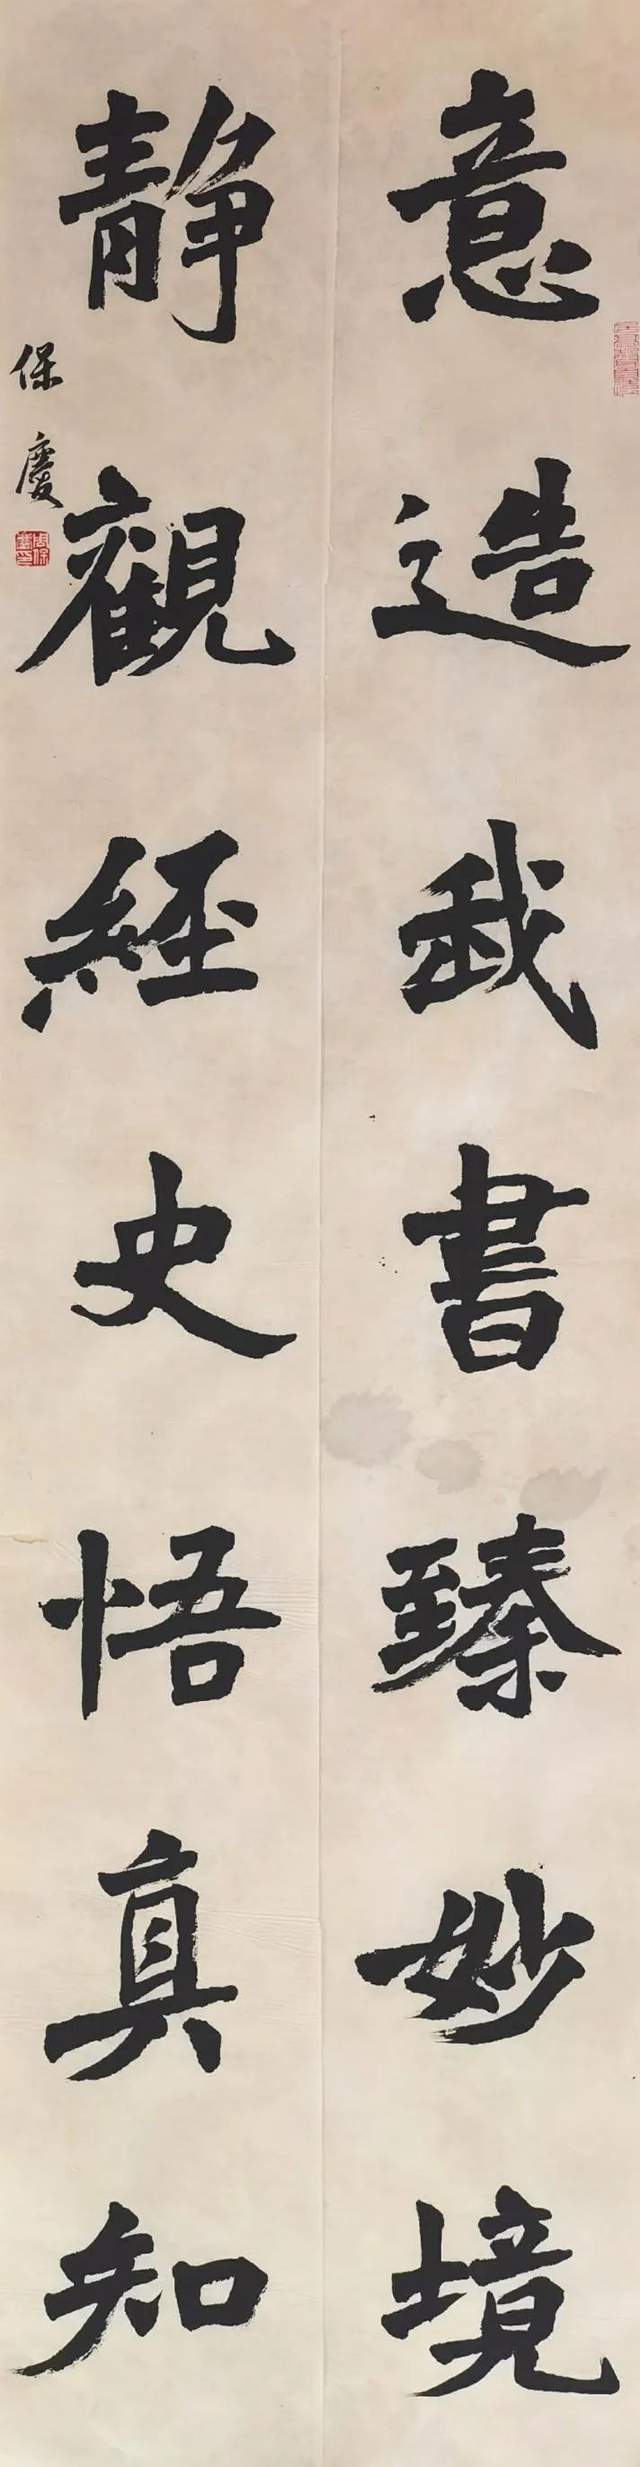 意造我書臻妙境
静觀經史悟真知
保慶